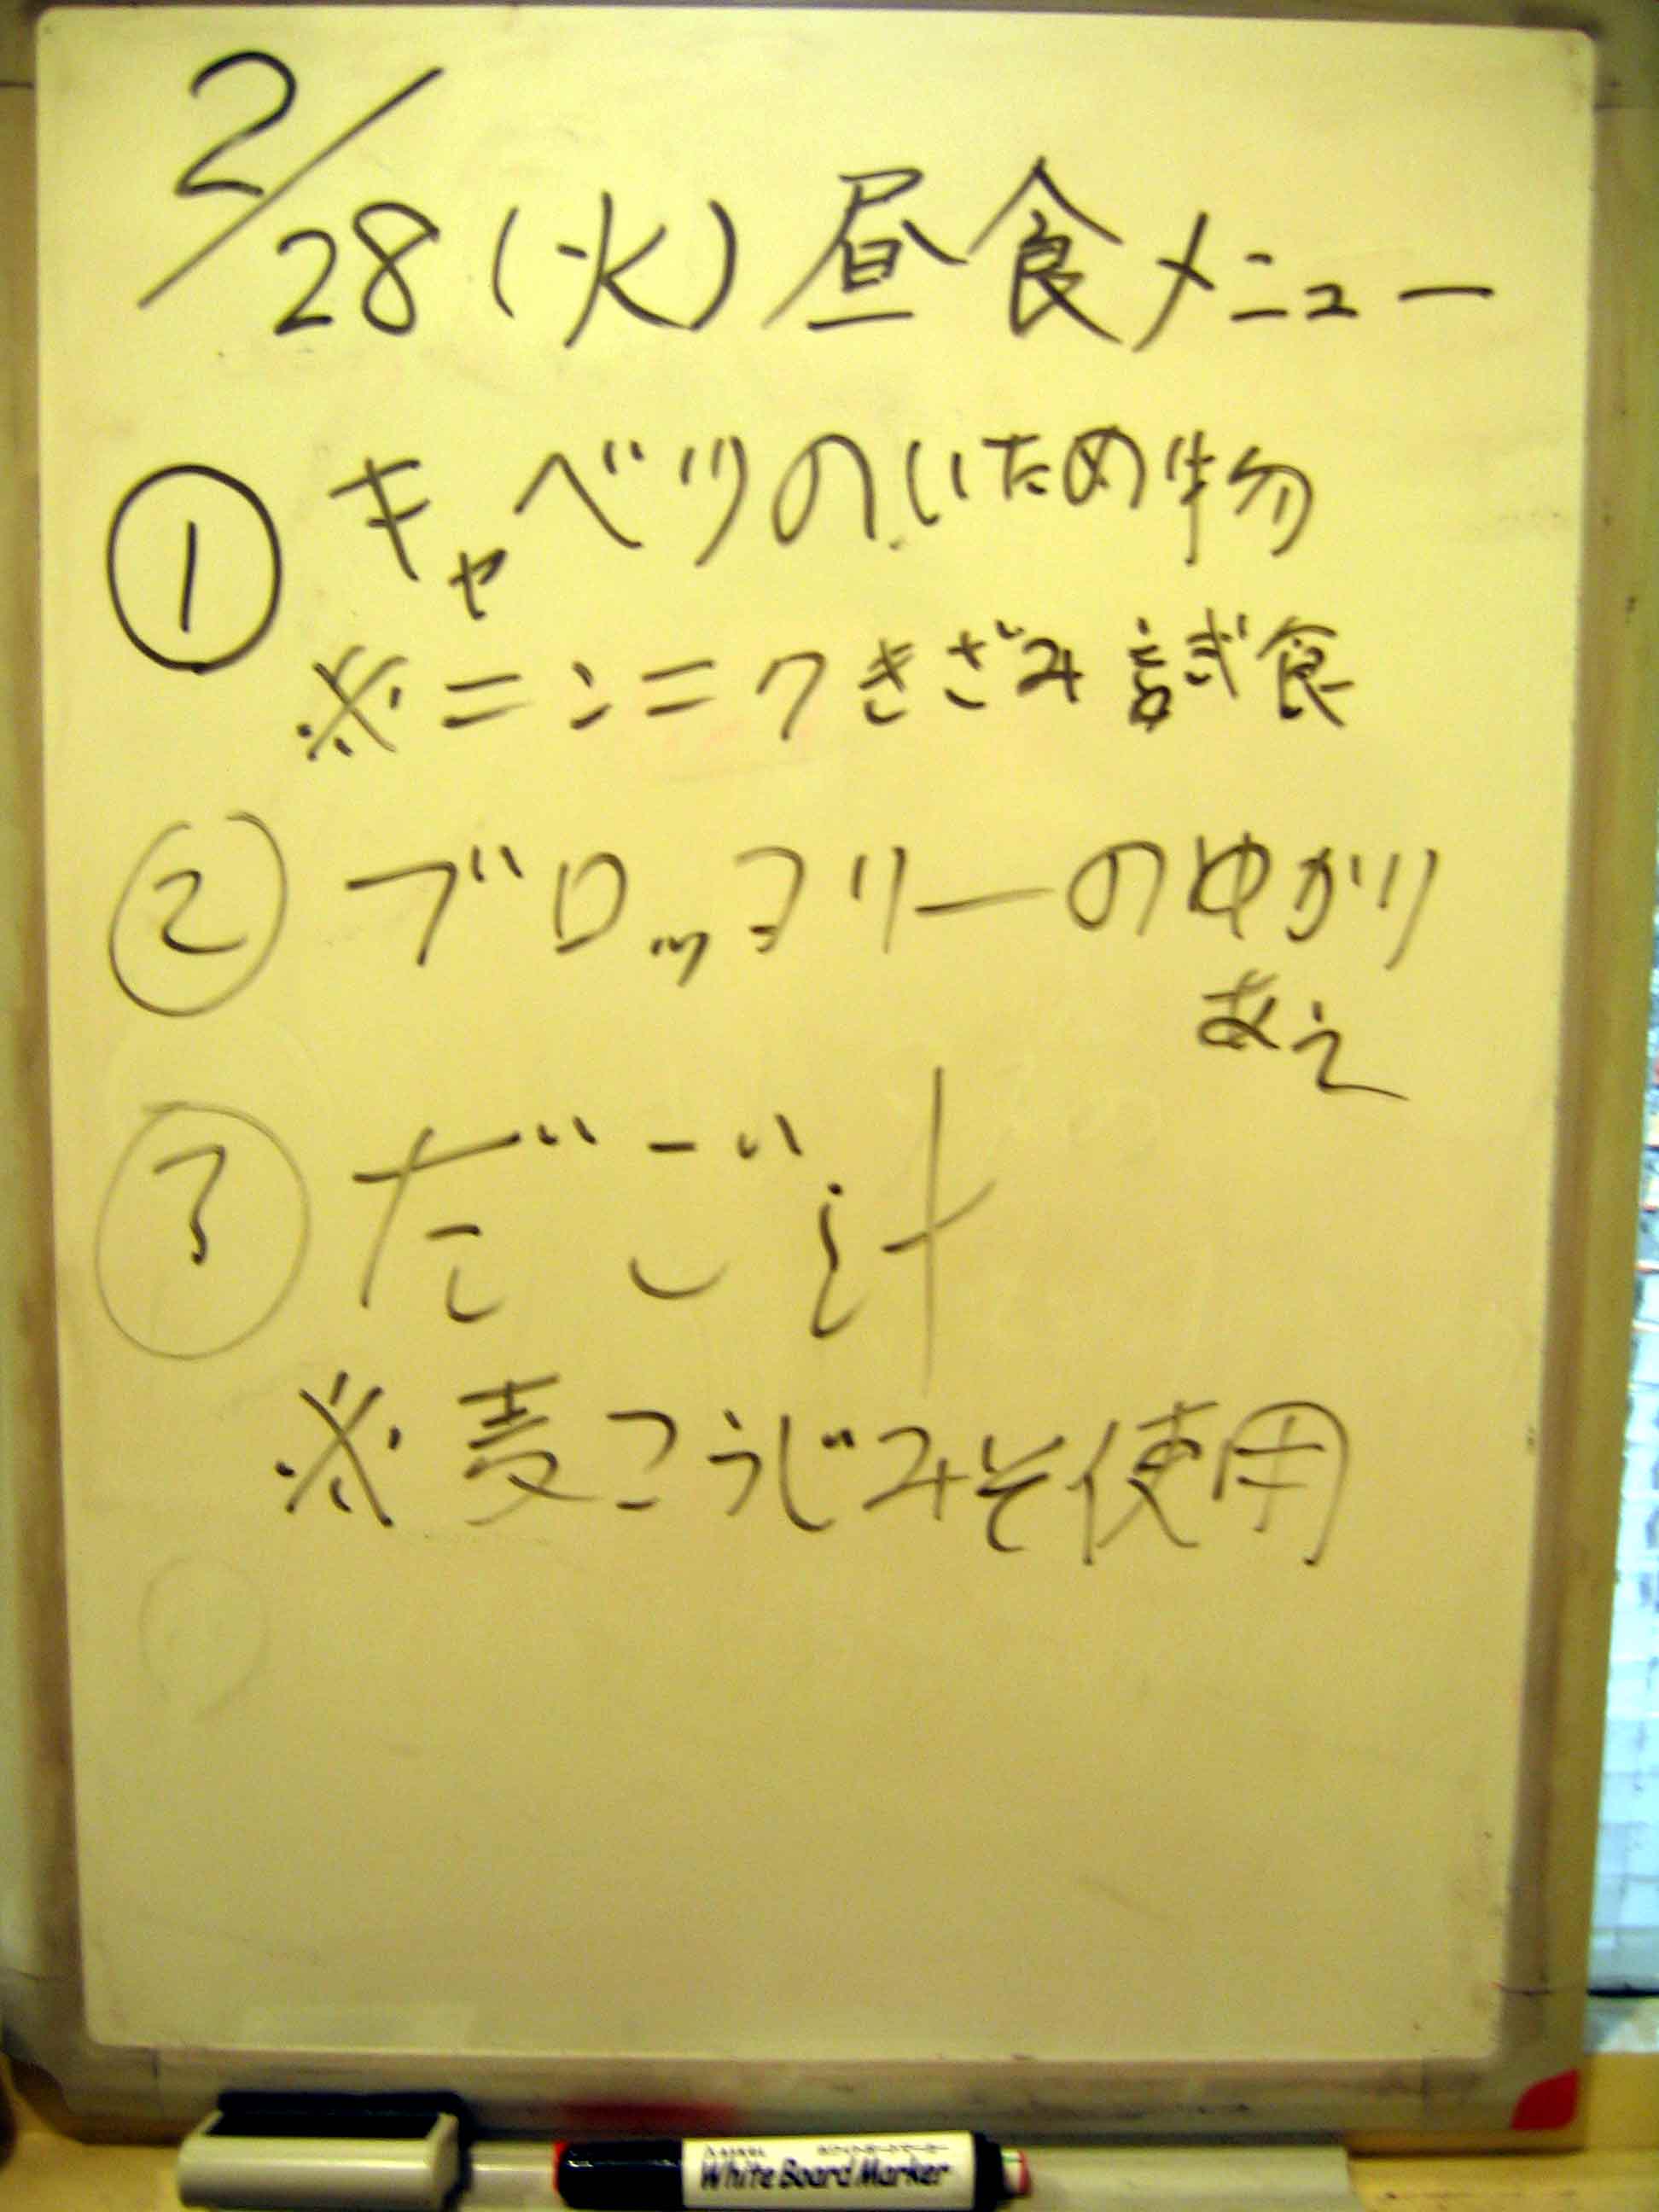 2/28(火)昼食メニュー
① キャベツのいため物
※ニンニクきざみ試食
② ブロッコリーのゆかり
あえ
③ だご汁
※麦こうじみそ使用
White Board Marker